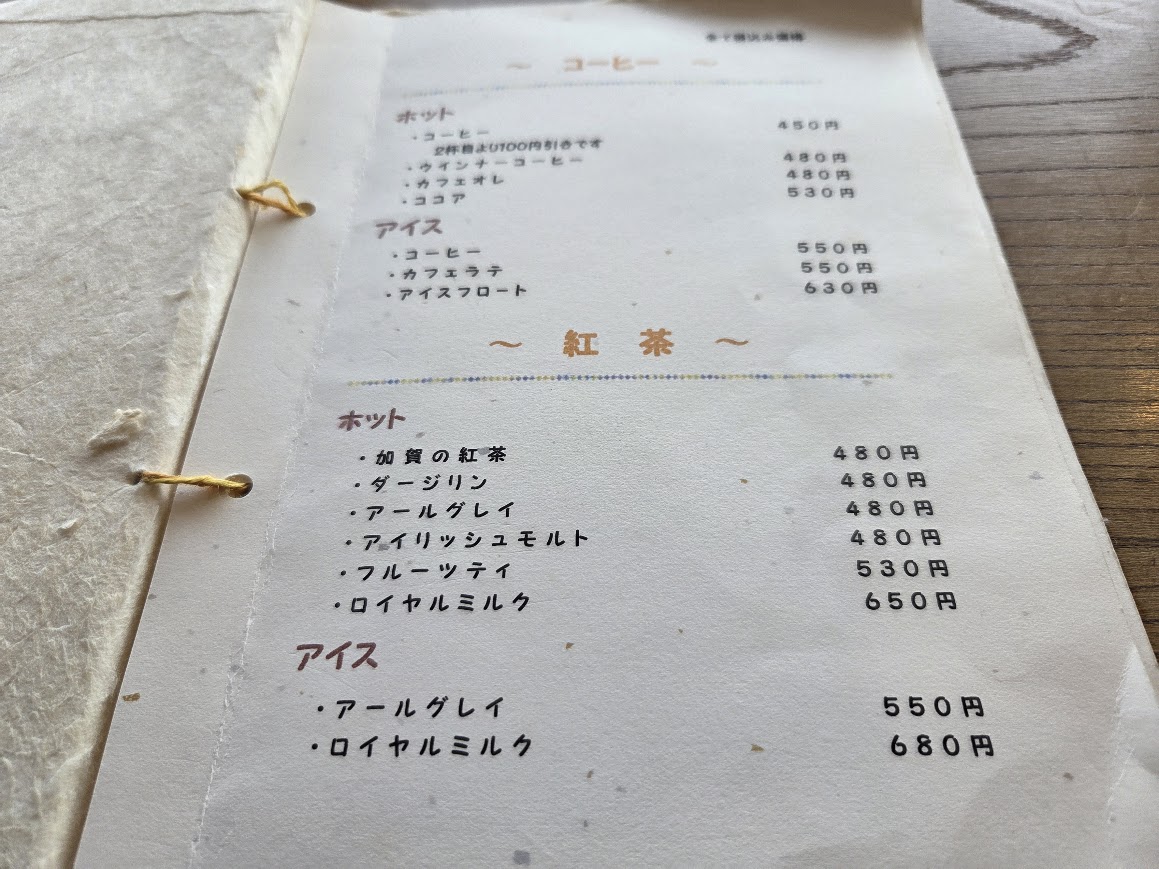 全て税込み価格
～ コーヒー ～
ホット
・コーヒー 450円
2杯目より100円引きです
・ウインナーコーヒー 480円
・カフェオレ 480円
・ココア 530円
アイス
・コーヒー 550円
・カフェラテ 550円
・アイスフロート 630円
～ 紅 茶 ～
ホット
・加賀の紅茶 480円
・ダージリン 480円
・アールグレイ 480円
・アイリッシュモルト 480円
・フルーツティ 530円
・ロイヤルミルク 650円
アイス
・アールグレイ 550円
・ロイヤルミルク 680円